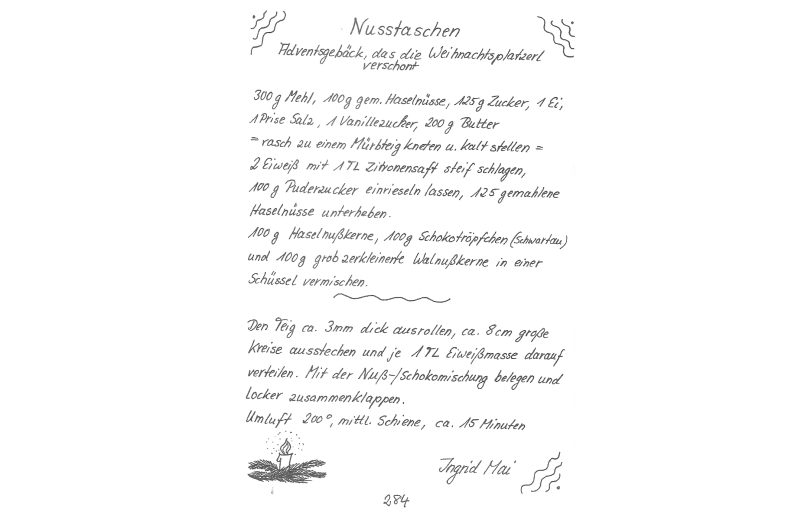 Nusstaschen
Adventsgebäck, das die Weihnachtsplatzerl
verschönt
300 g Mehl, 100 g gem. Haselnüsse, 125 g Zucker, 1 Ei,
1 Prise Salz, 1 Vanillezucker, 200 g Butter
= rasch zu einem Mürbteig kneten u. kalt stellen =
2 Eiweiß mit 1 TL Zitronensaft steif schlagen,
100 g Puderzucker einrieseln lassen, 125 gemahlene
Haselnüsse unterheben.
100 g Haselnußkerne, 100 g Schokotröpfchen (Schwartau)
und 100 g grob zerkleinerte Walnußkerne in einer
Schüssel vermischen.
Den Teig ca. 3mm dick ausrollen, ca. 8 cm große
Kreise ausstechen und je 1 TL Eiweißmasse darauf
verteilen. Mit der Nuß-/Schokomischung belegen und
locker zusammenklappen.
Umluft 200°, mittl. Schiene, ca. 15 Minuten
Ingrid Mai
284